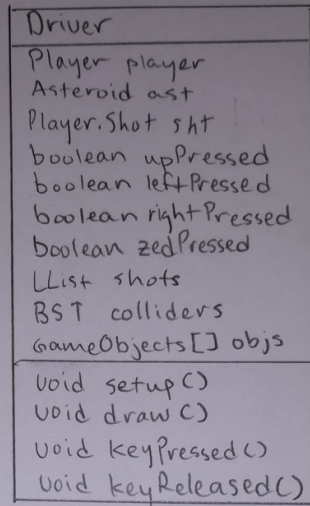 Driver
Player player
Asteroid ast
Player.Shot sht
boolean upPressed
boolean leftPressed
boolean rightPressed
boolean zedPressed
LList shots
BST colliders
GameObjects[] objs
void setup()
void draw()
void keyPressed()
void keyReleased()